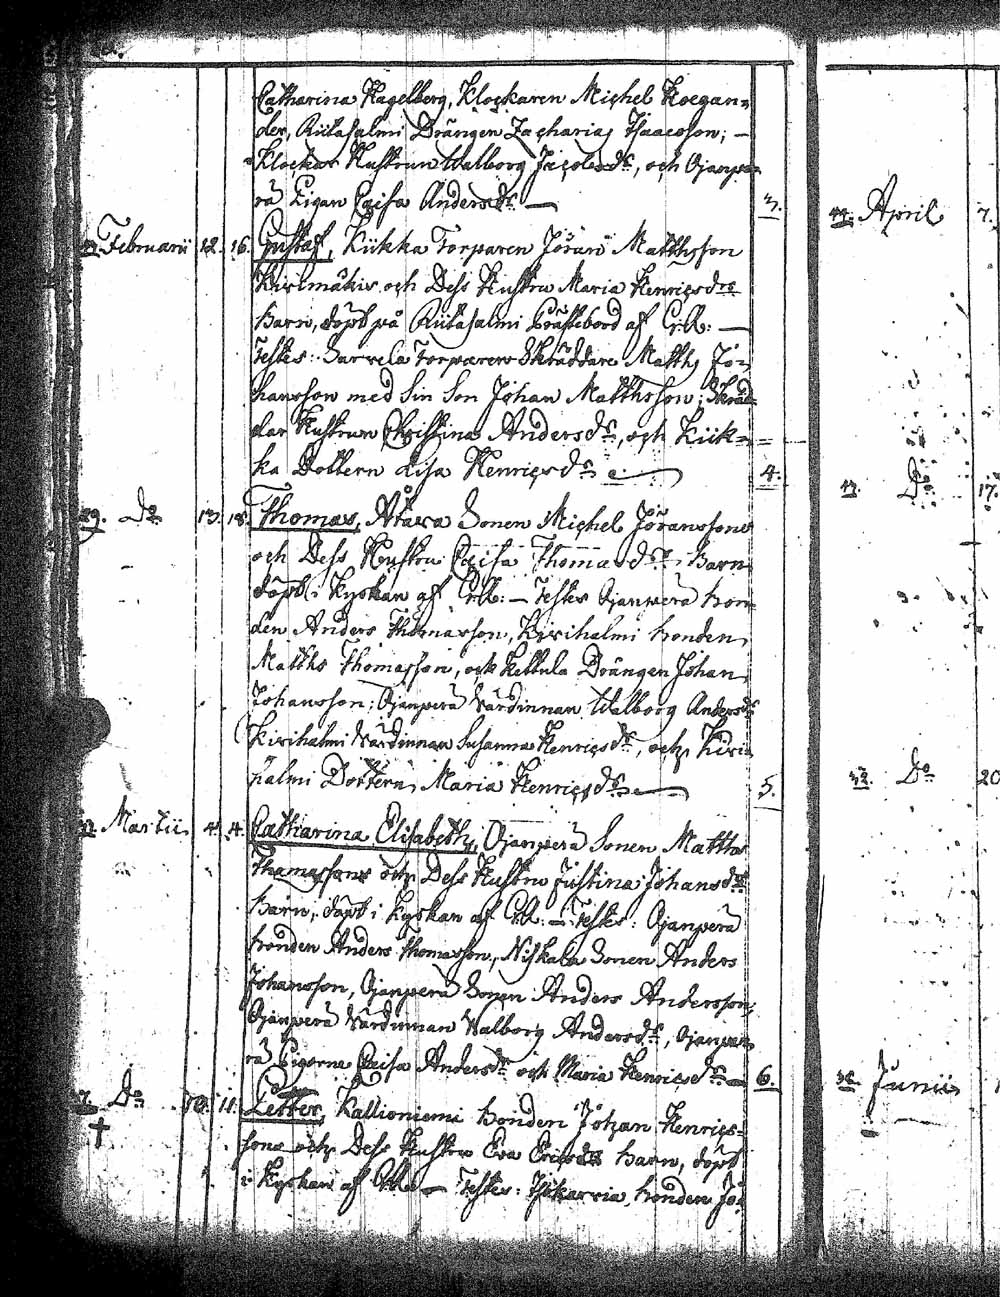 Catharina Hagelberg, Klockaren Michel Hoegan=
der, Riitasalmi Drängen Zacharias Isaacsson; —
Klockar Hustrun Walborg Jacobsdr, och Ojanpe=
rä Pigan Caisa Andersdr —
3.
Februarii 12. 16. Gustaf, Kiikka Torparen Jöran Matthsson
och Dess Hustru Maria Henricsdrs
Barn, döpt på Riitasalmi af C:A: —
Testes: Torparen Skräddare Matths Jo=
hansson med sin Son Johan Matthsson; Skräd=
dar Hustrun Christina Andersdr, och Kiik=
ka Dottern Lisa Henricsdr
4.
29. Do 13. 18. Thomas, Sonen Michel Jöranssons
och Dess Hustru Caisa Thomædrs Barn
döpt i Kyrkan af — Testes Ojanperä bon=
den Anders Thomasson, Kirihalmi bonden
Matths Thomasson, och Kettula Drängen Johan
Johansson; Ojanperä Värdinnan Walborg Andersdr
Kirihalmi Värdinnan Susanna Henricsdr, och Kiri=
halmi Dottern Maria Henricsdr —
5.
Martii 4. 4. Catharina Elisabeth, Ojanperä Sonen Matths
Thomassons och Dess Hustru Justina Johansdrs
Barn, döpt i Kyrkan af — Testes: Ojanperä
bonden Anders Thomasson, Niskala Sonen Anders
Johansson, Ojanperä Sonen Anders Andersson,
Ojanperä Värdinnan Walborg Andersdr, Ojanpe=
rä Pigorne Caisa Andersdr och Maria Henricsdr —
6.
7. Do 10. 11. Petter, Kallioniemi bonden Johan Henrics=
sons och Dess Hustru Eva Ericsdrs Barn, döpt
i Kyrkan af — Testes: bonden Jo=
April 7.
Do 17.
32. Do 20
Junii